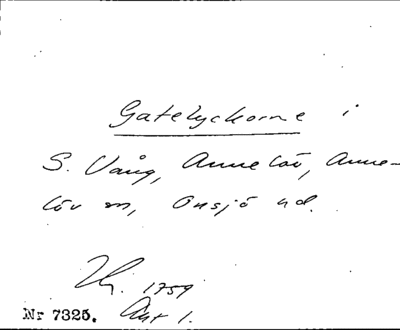 Gatelyckorne i
S. Vång, Annelöv, Anne-
löv sn, Onsjö hd.
1759
Akt 1.
Nr 7325.